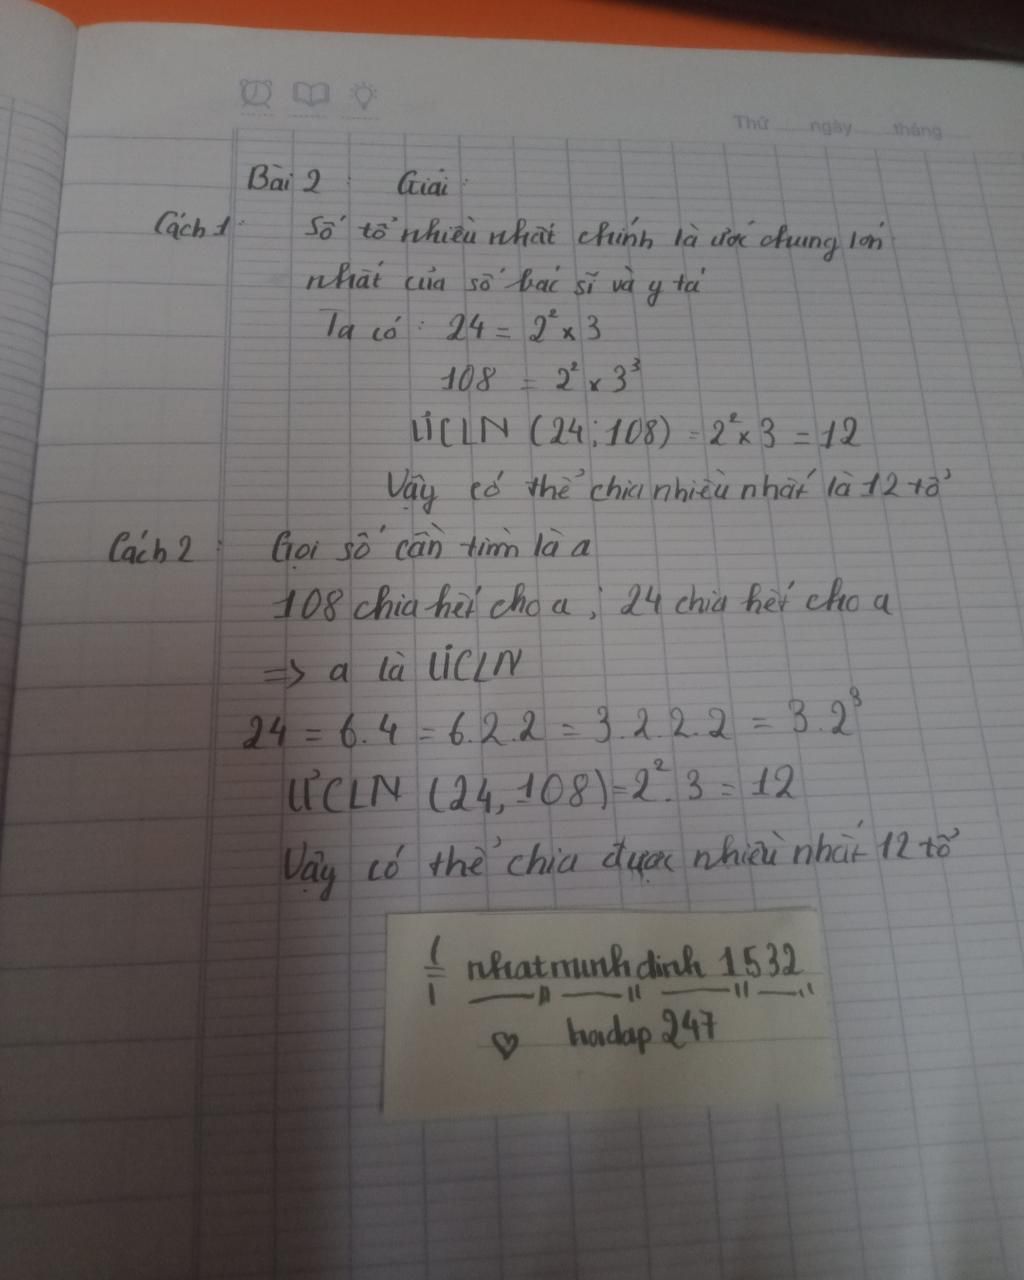 Thứ ngày tháng
Bài 2 : Giải :
Cách 1 : Số tổ nhiều nhất chính là ước chung lớn
nhất của số bác sĩ và y tá
Ta có : 24 = 2² x 3
108 = 2² x 3³
ƯCLN (24 ; 108) = 2² x 3 = 12
Vậy có thể chia nhiều nhất là 12 tổ
Cách 2 : Gọi số cần tìm là a
108 chia hết cho a ; 24 chia hết cho a
=> a là ƯCLN
24 = 6.4 = 6.2.2 = 3.2.2.2 = 3.2³
ƯCLN (24, 108) = 2².3 = 12
Vậy có thể chia được nhiều nhất 12 tổ
nhatminhdinh 1532
♡ hoidap 247